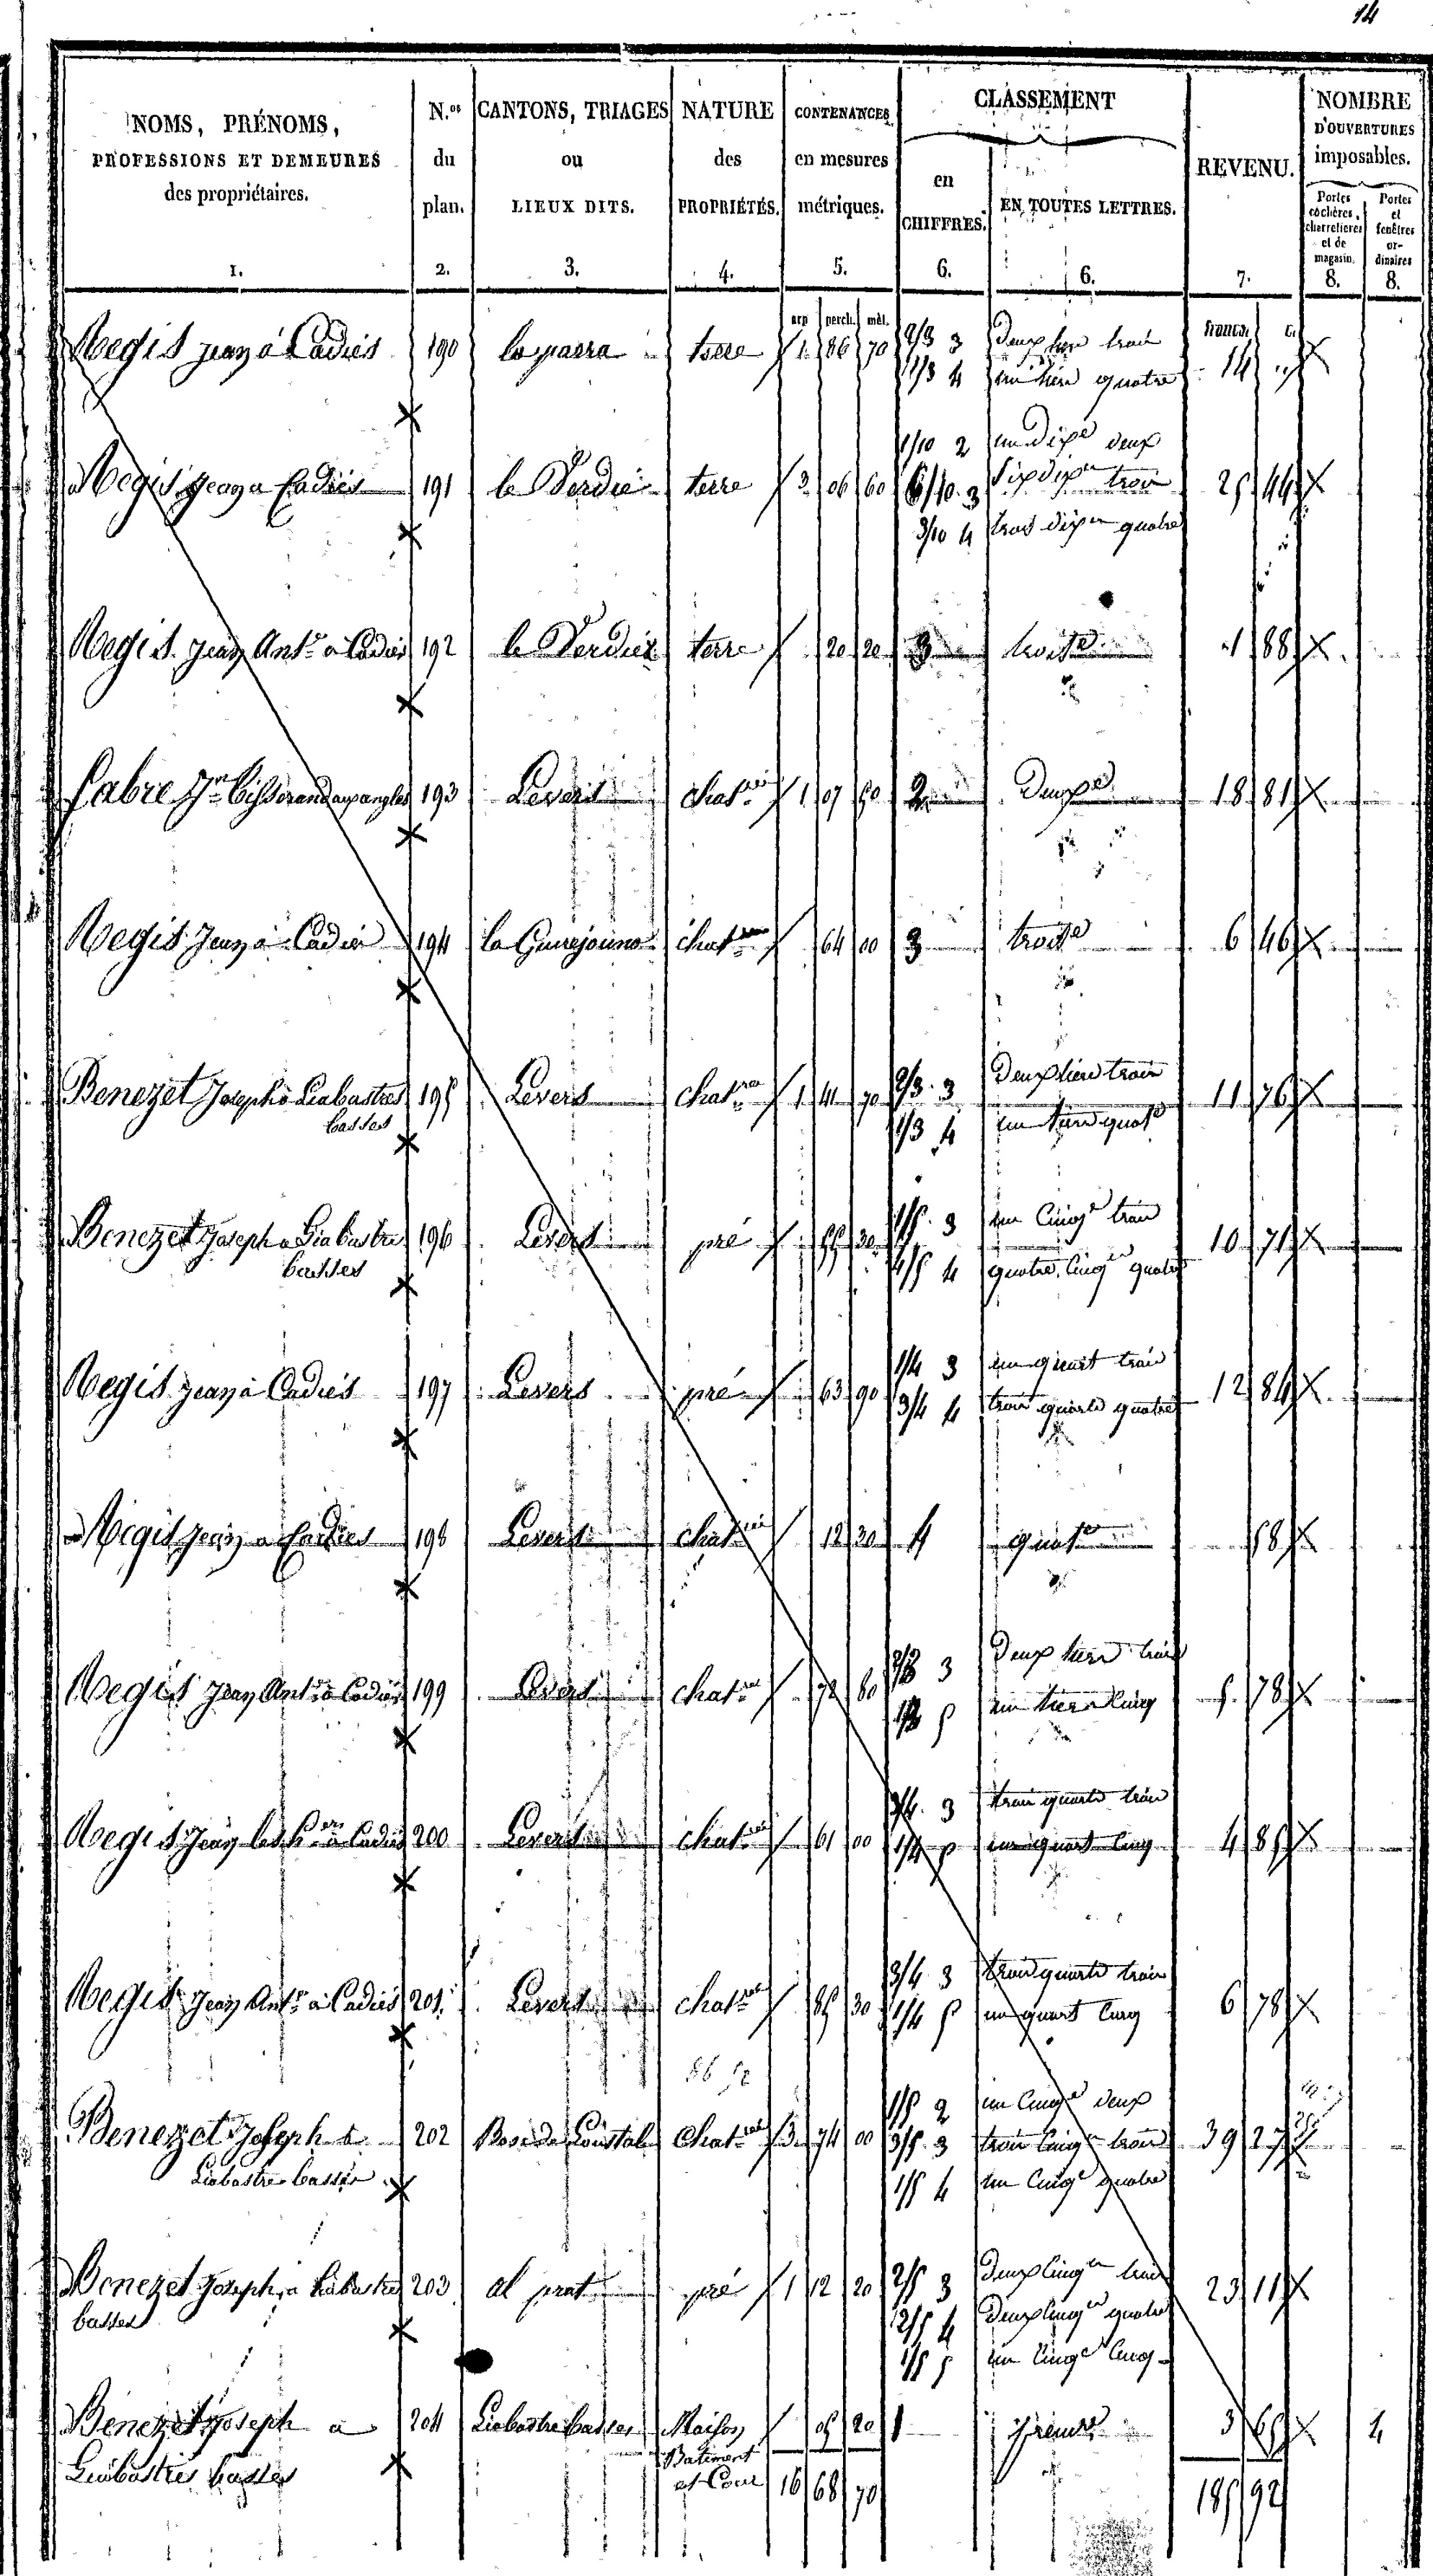 14
NOMS, PRÉNOMS, PROFESSIONS ET DEMEURES des propriétaires. 1.
N.os du plan. 2.
CANTONS, TRIAGES ou LIEUX DITS. 3.
NATURE des PROPRIÉTÉS. 4.
CONTENANCES en mesures métriques. 5.
CLASSEMENT
en CHIFFRES. 6.
EN TOUTES LETTRES. 6.
REVENU. 7.
NOMBRE D'OUVERTURES imposables.
Portes cochères, charretieres et de magasin. 8.
Portes et fenêtres ordinaires 8.
arp perch. mèt. francs. c.
Regis Jean à Cadiés 190 terre 1 86 70 2/3 3 Deux tiers trois 14
1/3 4 un tiers quatre
1/10 2 un dixe deux
Regis Jean a Cadiés 191 le Verdié terre 3 06 60 6/10 3 Six dixen trois 25 44
3/10 4 trois dixen quatre
Regis Jean Ante a Cadiés 192 le Verdié terre 20 20 3 troise 1 88
Cabre 193 Levers chatrai 1 07 50 2 Deuxe 18 81
Regis Jean à Cadiés 194 chat 64 00 3 troise 6 46
Benezet Joseph à Liabastres 195 Levers chat 1 41 70 2/3 3 Deux tiers trois 11 76
basses 1/3 4 un tiers quat
Benezet Joseph a Liabastres 196 Levers pré 55 30 1/5 3 un Cinqe trois 10 71
basses 4/5 4 quatre Cinqe quatre
Regis Jean à Cadiés 197 Levers pré 63 90 1/4 3 un quart trois 12 84
3/4 4 trois quarts quatre
Regis Jean a Cadiés 198 Levers chat 12 30 4 quat 58
Regis Jean Ante à Cadiés 199 Levers chat 72 80 2/3 3 Deux tiers trois 5 78
1/3 5 un tiers Cinq
Regis Jean à Cadiés 200 Levers chat 61 00 3/4 3 trois quarts trois 4 85
1/4 5 un quart Cinq
Regis Jean Ante à Cadiés 201 Levers chat 85 30 3/4 3 trois quarts trois 6 78
1/4 5 un quart Cinq
1/5 2 un Cinqe deux
Benezet Joseph à 202 Bosc de Coustal Chat 3 74 00 3/5 3 trois Cinqe trois 39 27
Liabastres basses 1/5 4 un Cinqe quatre
Benezet Joseph, a Liabastres 203 al prat pré 1 12 20 2/5 3 Deux Cinqe trois 23 11
basses 2/5 4 Deux Cinqe quatre
1/5 5 un Cinqe Cinq
Benezet Joseph à 204 Liabastres basses Maison 05 20 1 3 65 4
Liabastres basses Batiment et Cour 16 68 70 185 92